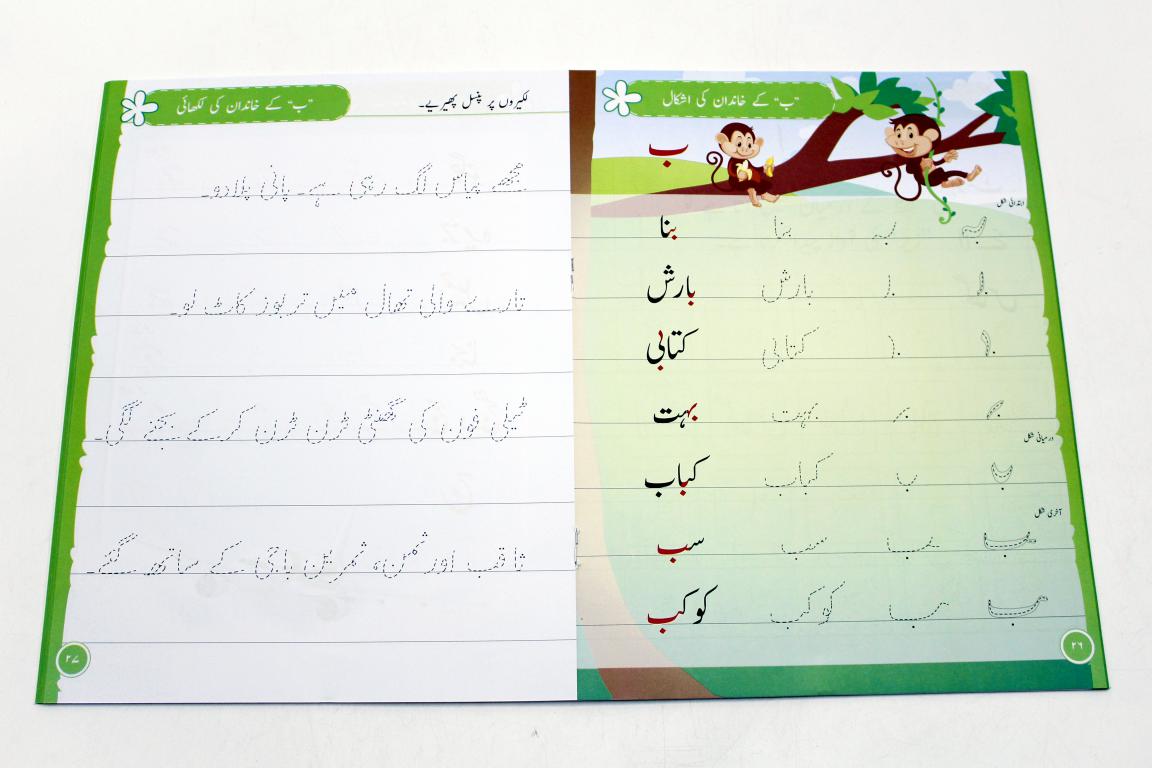 "ب" کے خاندان کی اشکال
ب
ابتدائی شکل
بنا بنا بہ بہ
بارش بارش با با
کتابی کتابی
بہت بہت بہ
درمیانی شکل
کباب کباب ب ب
آخری شکل
سب سب ب ب
کوکب کوکب ب ب
۲۶
"ب" کے خاندان کی لکھائی
لکیروں پر پنسل پھیریے۔
مجھے پیاس لگ رہی ہے۔ پانی پلا دو۔
تارے والی تھال میں تربوز کاٹ لو۔
ٹیلی فون کی گھنٹی ٹرن ٹرن کر کے بجنے لگی۔
ثاقب اور ثمن، ثمرین باجی کے ساتھ گئے۔
۲۷